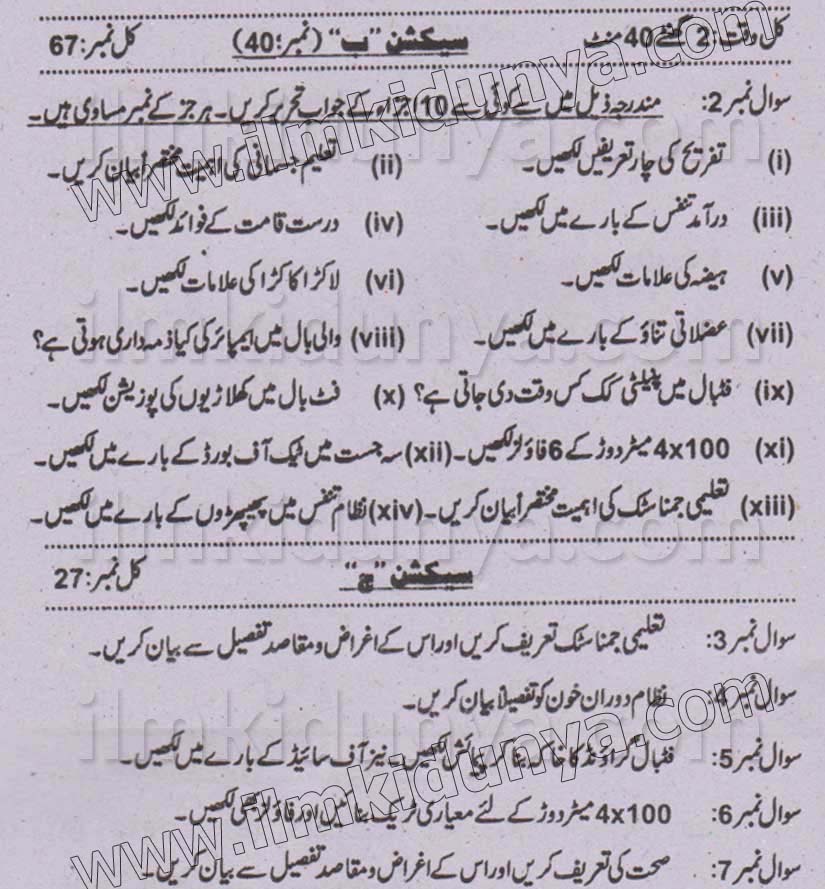 کل وقت: 2 گھنٹے 40 منٹ سیکشن "ب" (نمبر: 40) کل نمبر: 67
سوال نمبر 2: مندرجہ ذیل میں سے کوئی سے (10) اجزاء کے جواب تحریر کریں۔ ہر جز کے نمبر مساوی ہیں۔
(i) تفریح کی چار تعریفیں لکھیں۔ (ii) تعلیم جسمانی کی اہمیت مختصراً بیان کریں۔
(iii) درآمد تنفس کے بارے میں لکھیں۔ (iv) درست قامت کے فوائد لکھیں۔
(v) ہیضہ کی علامات لکھیں۔ (vi) لاکڑا کاکڑا کی علامات لکھیں۔
(vii) عضلاتی تناؤ کے بارے میں لکھیں۔ (viii) والی بال میں ایمپائر کی کیا ذمہ داری ہوتی ہے؟
(ix) فٹبال میں پنیلٹی کک کس وقت دی جاتی ہے؟ (x) فٹ بال میں کھلاڑیوں کی پوزیشن لکھیں۔
(xi) 4x100 میٹر دوڑ کے 6 فاؤلز لکھیں۔ (xii) سہ جست میں ٹیک آف بورڈ کے بارے میں لکھیں۔
(xiii) تعلیمی جمناسٹک کی اہمیت مختصراً بیان کریں۔ (xiv) نظام تنفس میں پھیپھڑوں کے بارے میں لکھیں۔
سیکشن "ج" کل نمبر: 27
سوال نمبر 3: تعلیمی جمناسٹک تعریف کریں اور اس کے اغراض و مقاصد تفصیل سے بیان کریں۔
سوال نمبر 4: نظام دوران خون کو تفصیلاً بیان کریں۔
سوال نمبر 5: فٹبال گراؤنڈ کا خاکہ بنا کر پیمائش لکھیں۔ نیز آف سائیڈ کے بارے میں لکھیں۔
سوال نمبر 6: 4x100 میٹر دوڑ کے لئے معیاری ٹریک بنائیں اور فاؤلز بھی لکھیں۔
سوال نمبر 7: صحت کی تعریف کریں اور اس کے اغراض و مقاصد تفصیل سے بیان کریں۔
www.ilmkidunya.com
ilmkidunya.com
ilmkidunya.com
ilmkidunya.com
ilmkidunya.com
www.ilmkidunya.com